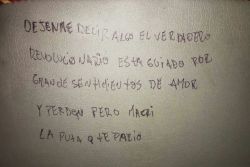 DEJENME DECIR ALGO EL VERDADERO
REVOLUCIONARIO ESTA GUIADO POR
GRANDE SENTIMIENTOS DE AMOR
Y PERDON PERO MACRI
LA PUTA Q TE PARIO